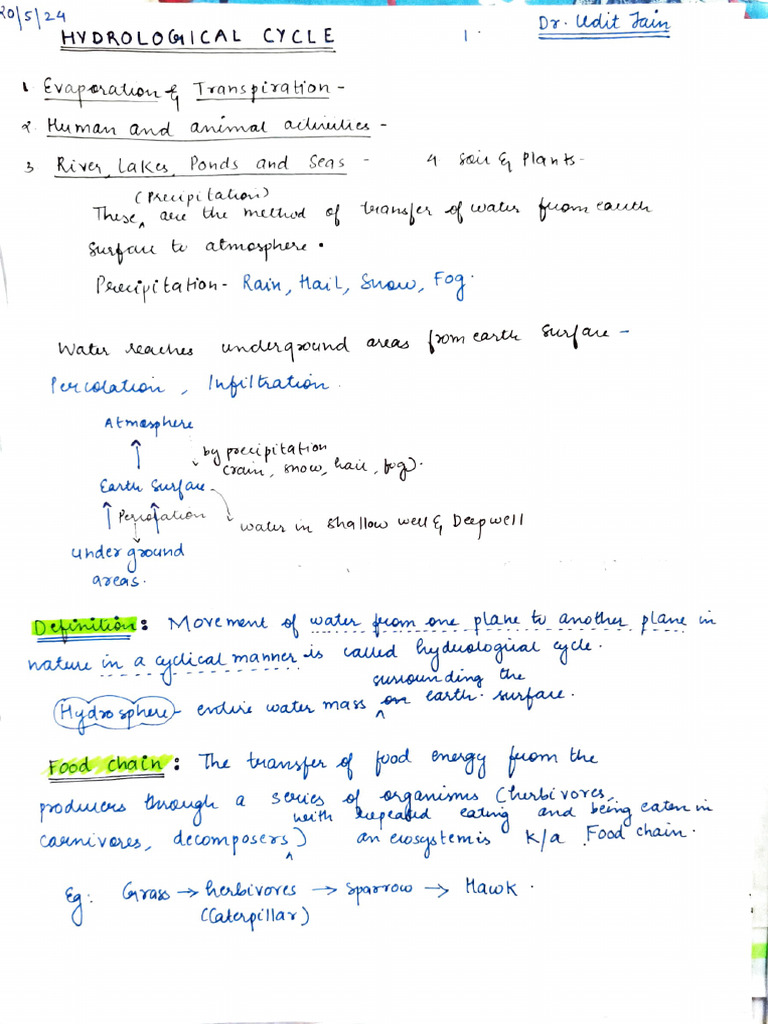 20/5/24
Dr. Udit Jain
HYDROLOGICAL CYCLE 1.
1. Evaporation & Transpiration -
2. Human and animal activities -
3 River, Lakes, Ponds and Seas - 4 Soil & Plants -
(Precipitation)
These ^ are the method of transfer of water from earth
surface to atmosphere.
Precipitation - Rain, Hail, Snow, Fog.
Water reaches underground areas from earth surface -
Percolation, Infiltration.
Atmosphere
by precipitation
(rain, snow, hail, fog).
Earth Surface
Percolation
water in shallow well & Deep well
underground
areas.
Definition: Movement of water from one plane to another plane in
nature in a cyclical manner is called hydrological cycle.
surrounding the
Hydrosphere - entire water mass ^ on earth surface.
Food chain: The transfer of food energy from the
producers through a series of organisms (herbivores,
with repeated eating and being eaten in
carnivores, decomposers) ^ an ecosystem is k/a Food chain.
Eg: Grass → herbivores → sparrow → Hawk.
(Caterpillar)